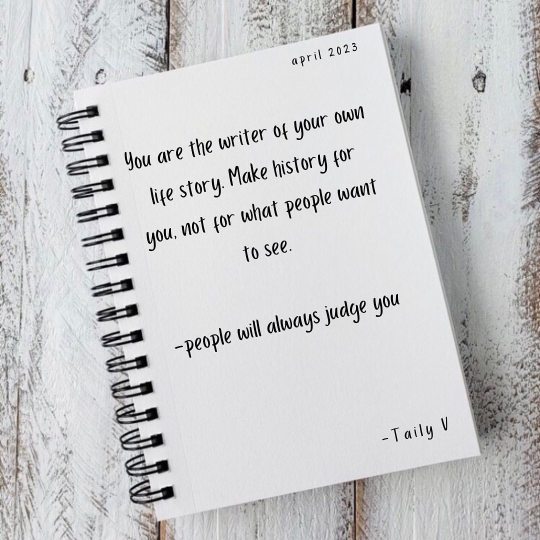 april 2023
You are the writer of your own
life story. Make history for
you, not for what people want
to see.
-people will always judge you
-Taily V